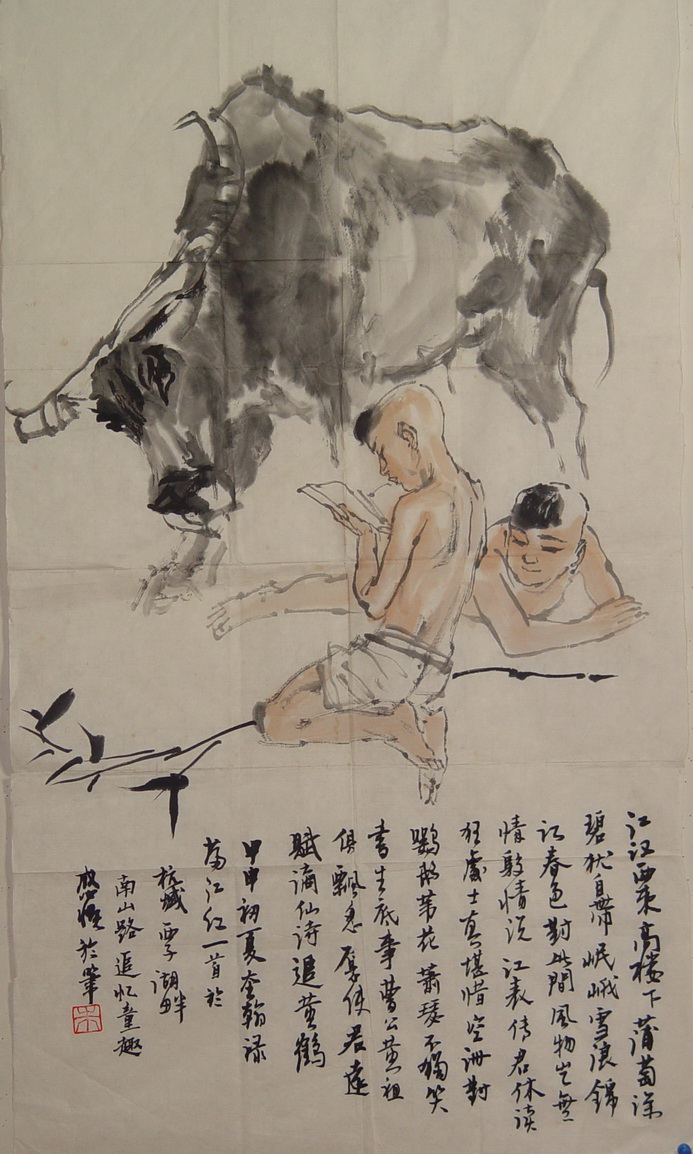 江汉西来高楼下蒲萄深
碧犹自帶岷峨雪浪錦
江春色對此間風物岂無
情殷情说江表传君休读
狂處士真堪惜空洲對
鹦鹉苇花萧瑟不獨笑
書生底事曹公黄祖
俱飘忽愿使君還
赋谪仙诗追黄鹤
甲申初夏奎翰录
满江红一首於
杭城西子湖畔
南山路追忆童趣
於筆
朱